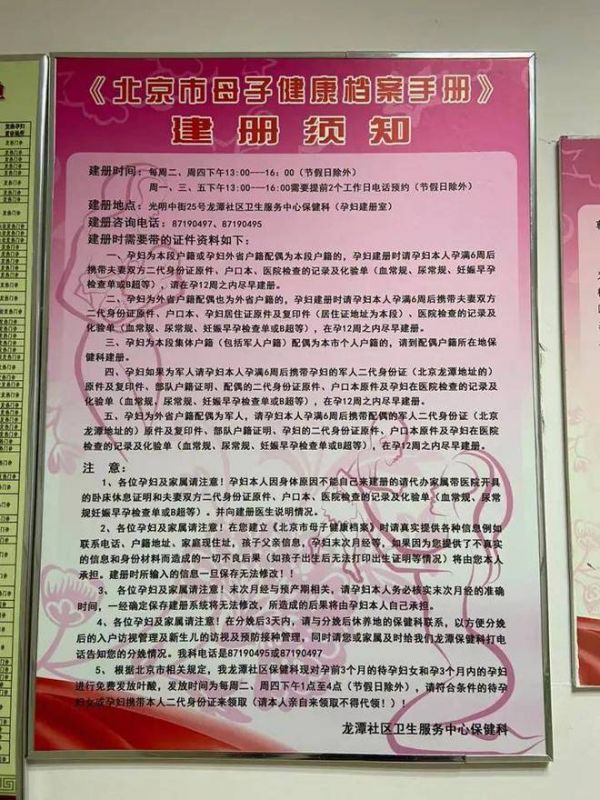 《北京市母子健康档案手册》
建册须知
建册时间：每周二、周四下午13:00---16:00（节假日除外）
周一、三、五下午13:00---16:00需要提前2个工作日电话预约（节假日除外）
建册地点：光明中街25号龙潭社区卫生服务中心保健科（孕妇建册室）
建册咨询电话：87190497、87190495
建册时需要带的证件资料如下：
一、孕妇为本段户籍或孕妇外省户籍配偶为本段户籍的，孕妇建册时请孕妇本人孕满6周后
携带夫妻双方二代身份证原件、户口本、医院检查的记录及化验单（血常规、尿常规、妊娠早孕
检查单或B超等），请在孕12周之内尽早建册。
二、孕妇为外省户籍配偶也为外省户籍的，孕妇建册时请孕妇本人孕满6周后携带夫妻双方
二代身份证原件、户口本、孕妇居住证原件及复印件（居住证地址为本段）、医院检查的记录及
化验单（血常规、尿常规、妊娠早孕检查单或B超等），在孕12周之内尽早建册。
三、孕妇为本段集体户籍（包括军人户籍）配偶为本市个人户籍的，请到配偶户籍所在地保
健科建册。
四、孕妇如果为军人请孕妇本人孕满6周后携带孕妇的军人二代身份证（北京龙潭地址的）
原件及复印件、部队户籍证明、配偶的二代身份证原件、户口本原件及孕妇在医院检查的记录及
化验单（血常规、尿常规、妊娠早孕检查单或B超等），在孕12周之内尽早建册。
五、孕妇为外省户籍配偶为军人，请孕妇本人孕满6周后携带配偶的军人二代身份证（北京
龙潭地址的）原件及复印件、部队户籍证明、孕妇的二代身份证原件、户口本原件及孕妇在医院
检查的记录及化验单（血常规、尿常规、妊娠早孕检查单或B超等），在孕12周之内尽早建册。
注 意：
1、各位孕妇及家属请注意！孕妇本人因身体原因不能自己来建册的请代办家属带医院开具
的卧床休息证明和夫妻双方二代身份证原件、户口本、医院检查的记录及化验单（血常规、尿常
规妊娠早孕检查单或B超等）。并向建册医生说明情况。
2、各位孕妇及家属请注意！在您建立《北京市母子健康档案》时请真实提供各种信息例如
联系电话、户籍地址、家庭现住址，孩子父亲信息，孕妇末次月经等，如果因为您提供了不真实
的信息和身份材料而造成的一切不良后果（如孩子出生后无法打印出生证明等情况）将由您本人
承担。建册时所输入的信息一旦保存无法修改！！
3、各位孕妇及家属请注意！末次月经与预产期相关，请孕妇本人务必核实末次月经的准确
时间，一经确定保存建册系统将无法修改，所造成的后果将由孕妇本人自己承担。
4、各位孕妇及家属请注意！在分娩后3天内，请与分娩后休养地的保健科联系，以方便分娩
后的入户访视管理及新生儿的访视及预防接种管理，同时请您或家属及时给我们龙潭保健科打电
话告知您的分娩情况。我科电话是87190495或87190497
5、根据北京市相关规定，我龙潭社区保健科现对孕前3个月的待孕妇女和孕3个月内的孕妇
进行免费发放叶酸，发放时间为每周二、周四下午1点至4点（节假日除外），请符合条件的待孕
妇女或孕妇携带本人二代身份证来领取（请本人亲自来领取不得代领！）！
龙潭社区卫生服务中心保健科